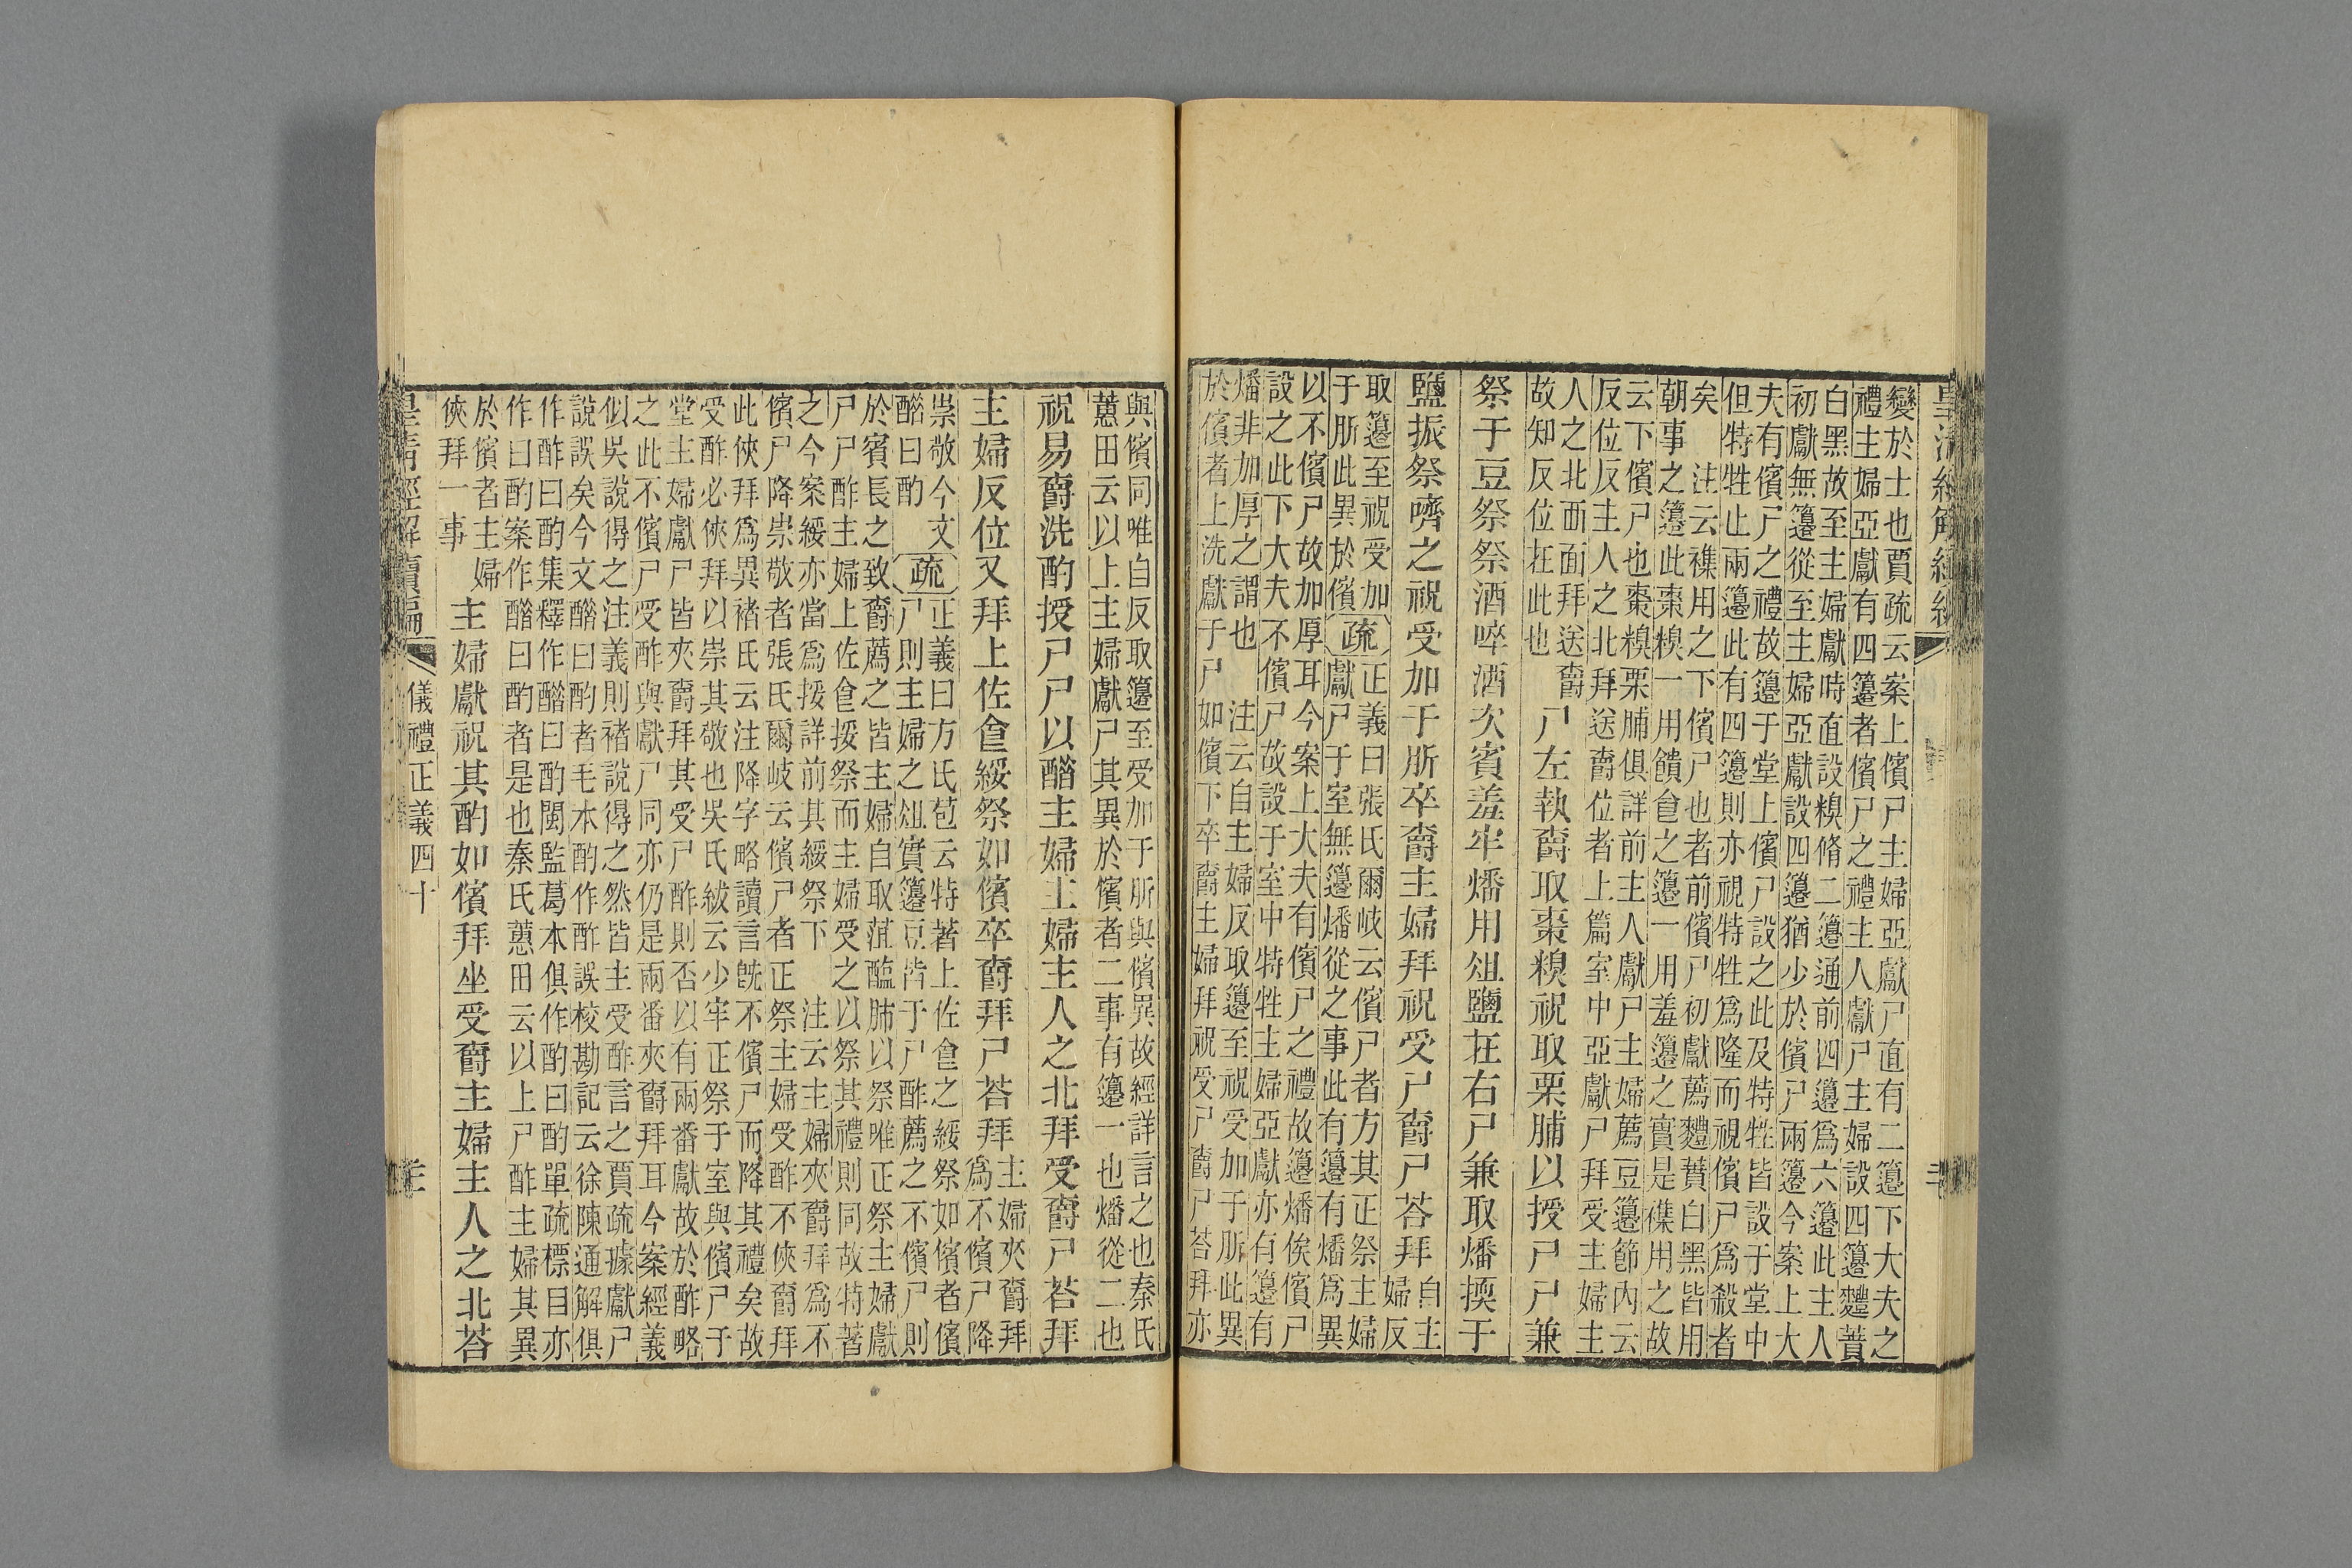 變於士也賈疏云案上儐尸主婦亞獻尸直有二籩下大夫之
禮主婦亞獻有四籩者儐尸之禮主人獻尸主婦設四籩麷蕡
白黑故至主婦獻時直設糗脩二籩通前四籩爲六籩此主人
初獻無籩從至主婦亞獻設四籩猶少於儐尸兩籩今案上大
夫有儐尸之禮故籩于堂上儐尸設之此及特牲皆設于堂中
但特牲止兩籩此有四籩則亦視特牲爲隆而視儐尸爲殺者
矣　注云襍用之下儐尸也者前儐尸初獻薦麷蕡白黑皆用
朝事之籩此棗糗一用饋食之籩一用羞籩之實是襍用之故
云下儐尸也棗糗栗脯俱詳前主人獻尸主婦薦豆籩節內云
反位反主人之北拜送爵位者上篇室中亞獻尸拜受主婦主
人之北西面拜送爵
故知反位在此也
尸左執爵取棗糗祝取栗脯以授尸尸兼
祭于豆祭祭酒啐酒次賓羞牢燔用俎鹽在右尸兼取燔擩于
鹽振祭嚌之祝受加于肵卒爵主婦拜祝受尸爵尸荅拜
自主
婦反
取籩至祝受加
于肵此異於儐
疏
正義曰張氏爾岐云儐尸者方其正祭主婦
獻尸于室無籩燔從之事此有籩有燔爲異
以不儐尸故加厚耳今案上大夫有儐尸之禮故籩燔俟儐尸
設之此下大夫不儐尸故設于室中特牲主婦亞獻亦有籩有
燔非加厚之謂也　注云自主婦反取籩至祝受加于肵此異
於儐者上洗獻于尸如儐下卒爵主婦拜祝受尸爵尸荅拜亦
與儐同唯自反取籩至受加于肵與儐異故經詳言之也秦氏
蕙田云以上主婦獻尸其異於儐者二事有籩一也燔從二也
祝易爵洗酌授尸尸以醋主婦主婦主人之北拜受爵尸荅拜
主婦反位又拜上佐食綏祭如儐卒爵拜尸荅拜
主婦夾爵拜
爲不儐尸降
崇敬今文
醋曰酌
疏
正義曰方氏苞云特著上佐食之綏祭如儐者儐
尸則主婦之俎實籩豆皆于尸酢薦之不儐尸則
於賓長之致爵薦之皆主婦自取菹醢肺以祭唯正祭主婦獻
尸尸酢主婦上佐食授祭而主婦受之以祭其禮則同故特著
之今案綏亦當爲授詳前其綏祭下　注云主婦夾爵拜爲不
儐尸降崇敬者張氏爾岐云儐尸者正祭主婦受酢不俠爵拜
此俠拜爲異褚氏云注降字略讀言旣不儐尸而降其禮矣故
受酢必俠拜以崇其敬也吳氏紱云少牢正祭于室與儐尸于
堂主婦獻尸皆夾爵拜其受尸酢則否以有兩番獻故於酢略
之此不儐尸受酢與獻尸同亦仍是兩番夾爵拜耳今案經義
似吳說得之注義則褚說得之然皆主受酢言之賈疏據獻尸
說誤矣今文醋曰酌者毛本酌作酢誤校勘記云徐陳通解俱
作酢曰酌集釋作醋曰酌閩監葛本俱作酌曰酌單疏標目亦
作曰酌案作醋曰酌者是也秦氏蕙田云以上尸酢主婦其異
於儐者主婦
俠拜一事
主婦獻祝其酌如儐拜坐受爵主婦主人之北荅
儀禮正義四十